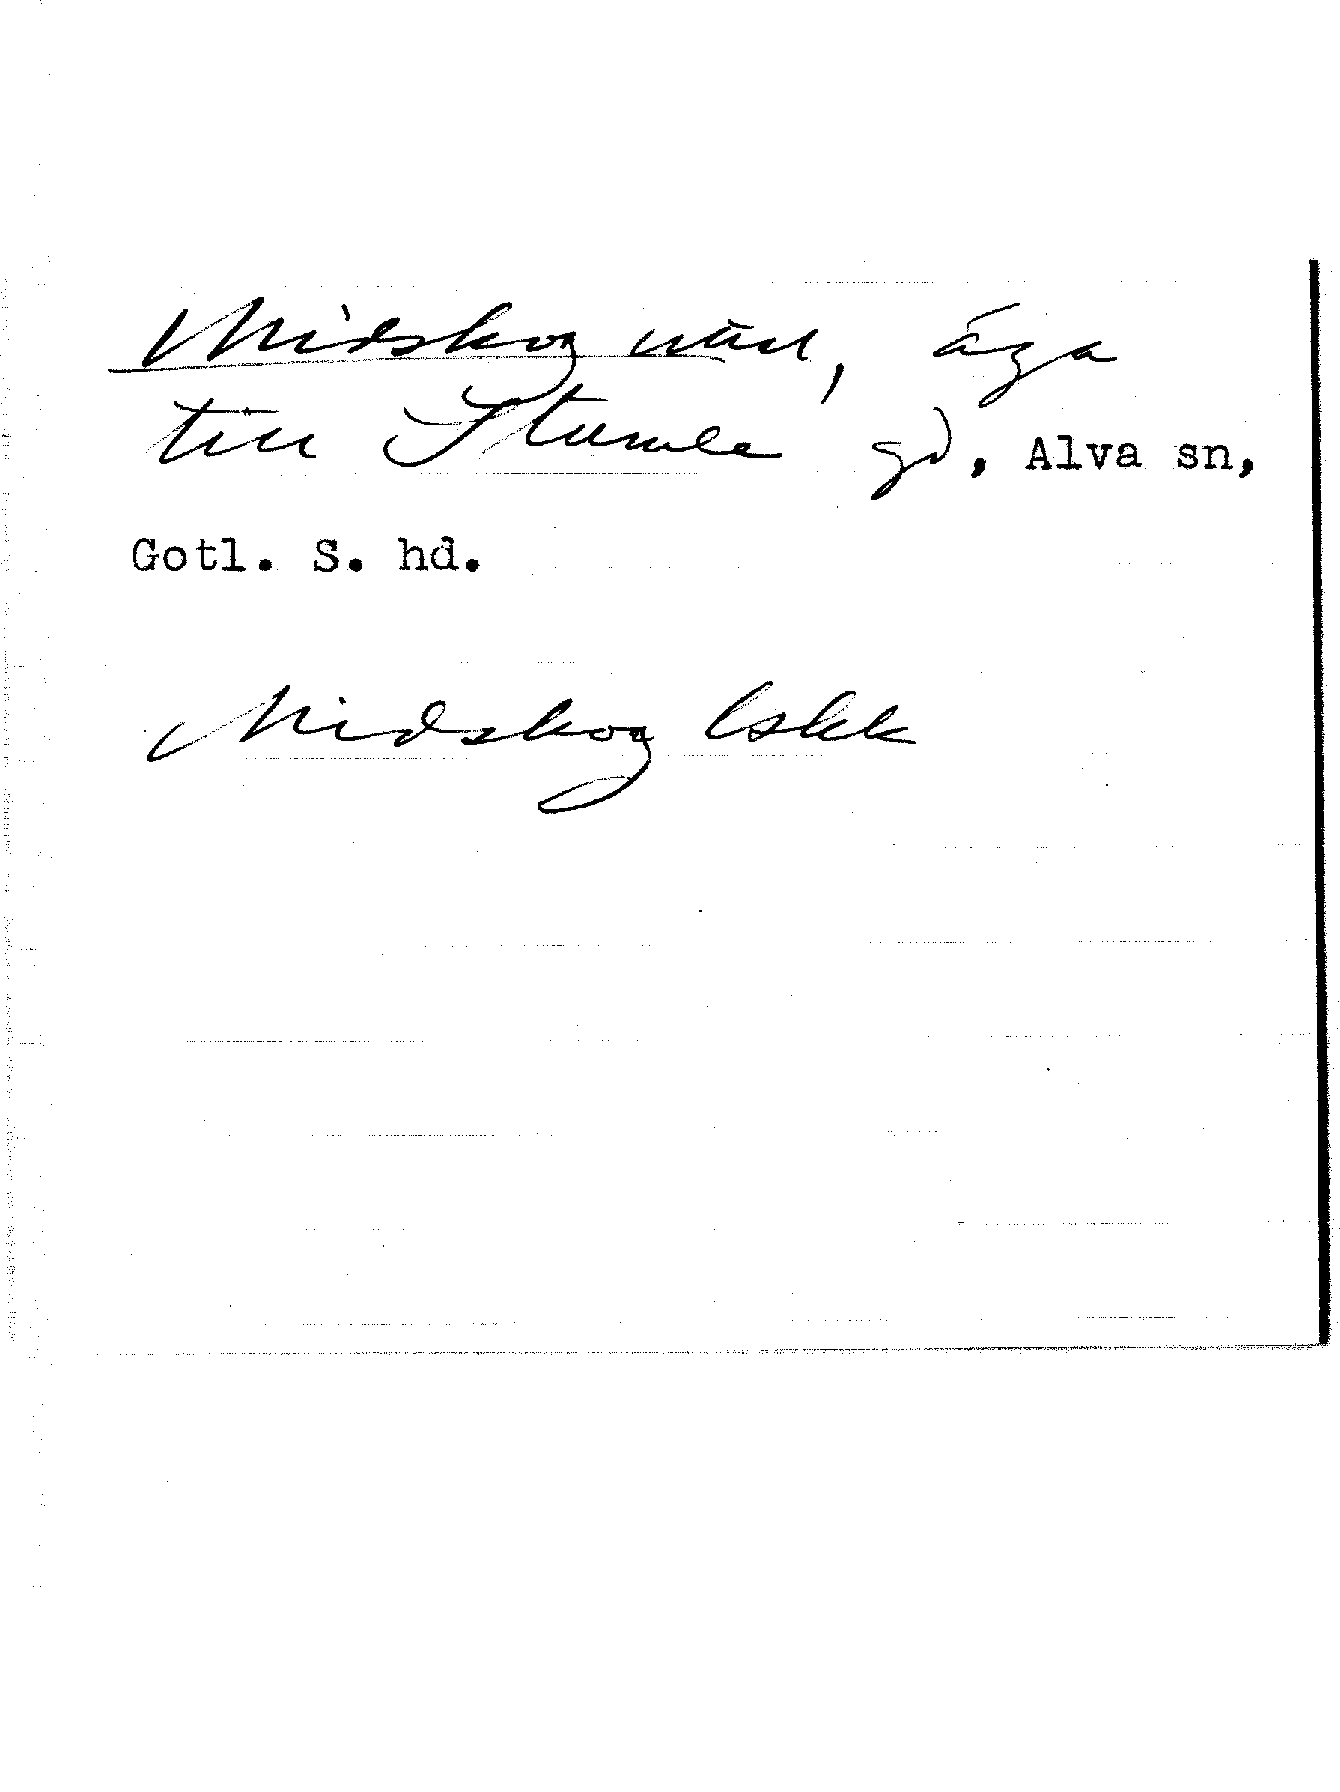 Midskog, äga
till Stumle gd, Alva sn,
Gotl. S. hd.
Midskog lskk